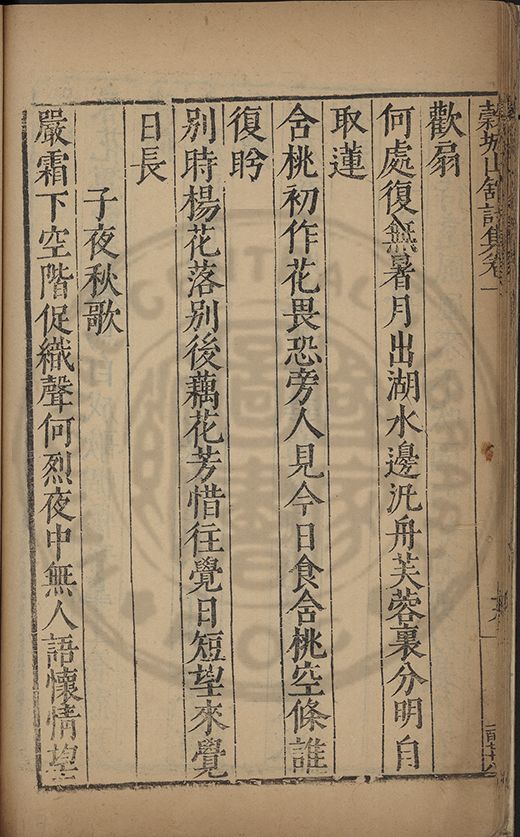 穀城山館詩集卷一
歡扇
何處復無暑月出湖水邊汎舟芙蓉裏分明自
取蓮
含桃初作花畏恐旁人見今日食含桃空條誰
復盻
別時楊花落別後藕花芳惜往覺日短望來覺
日長
子夜秋歌
嚴霜下空階促織聲何烈夜中無人語懷情望